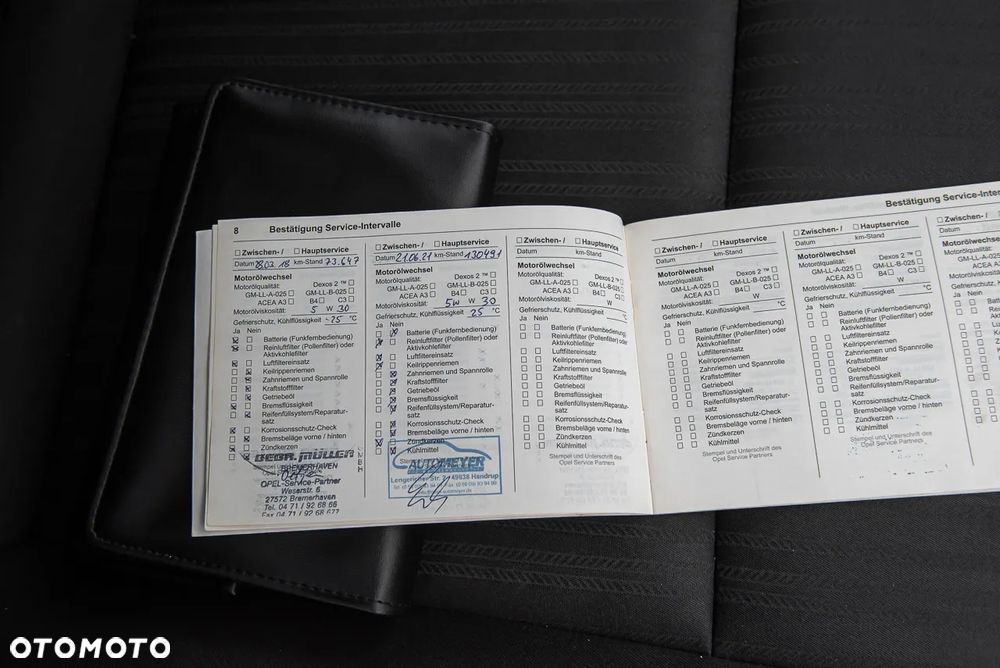 8 Bestätigung Service-Intervalle
☐ Zwischen- / ☐ Hauptservice
Datum 28.03.18 km-Stand 73.647
Motorölwechsel
Motorölqualität: Dexos 2 ™ ☐
GM-LL-A-025 ☐ GM-LL-B-025 ☐
ACEA A3 ☐ B4 ☐ C3 ☐
Motorölviskosität: 5 W 30
Gefrierschutz, Kühlflüssigkeit -25 °C
Ja Nein
Batterie (Funkfernbedienung)
Reinluftfilter (Pollenfilter) oder
Aktivkohlefilter
Luftfiltereinsatz
Keilrippenriemen
Zahnriemen und Spannrolle
Kraftstofffilter
Getriebeöl
Bremsflüssigkeit
Reifenfüllsystem/Reparatur-
satz
Korrosionsschutz-Check
Bremsbeläge vorne / hinten
Zündkerzen
GEBR. MÜLLER
BREMERHAVEN
OPEL-Service-Partner
Weserstr. 6
27572 Bremerhaven
Tel. 04 71 / 92 68 66
Fax 04 71 / 92 68 677
☐ Zwischen- / ☐ Hauptservice
Datum 21.06.21 km-Stand 130491
Motorölwechsel
Motorölqualität: Dexos 2 ™ ☐
GM-LL-A-025 ☐ GM-LL-B-025 ☐
ACEA A3 ☐ B4 ☐ C3 ☐
Motorölviskosität: 5W W 30
Gefrierschutz, Kühlflüssigkeit 25 °C
Ja Nein
Batterie (Funkfernbedienung)
Reinluftfilter (Pollenfilter) oder
Aktivkohlefilter
Luftfiltereinsatz
Keilrippenriemen
Zahnriemen und Spannrolle
Kraftstofffilter
Getriebeöl
Bremsflüssigkeit
Reifenfüllsystem/Reparatur-
satz
Korrosionsschutz-Check
Bremsbeläge vorne / hinten
Zündkerzen
Kühlmittel
AUTOMEYER
Lengericher Str. 49838 Handrup
☐ Zwischen- / ☐ Hauptservice
Datum km-Stand
Motorölwechsel
Motorölqualität: Dexos 2 ™ ☐
GM-LL-A-025 ☐ GM-LL-B-025 ☐
ACEA A3 ☐ B4 ☐ C3 ☐
Motorölviskosität: W
Gefrierschutz, Kühlflüssigkeit °C
Ja Nein
Batterie (Funkfernbedienung)
Reinluftfilter (Pollenfilter) oder
Aktivkohlefilter
Luftfiltereinsatz
Keilrippenriemen
Zahnriemen und Spannrolle
Kraftstofffilter
Getriebeöl
Bremsflüssigkeit
Reifenfüllsystem/Reparatur-
satz
Korrosionsschutz-Check
Bremsbeläge vorne / hinten
Zündkerzen
Kühlmittel
Stempel und Unterschrift des
Opel Service Partners
Bestätigung Service-Inter
☐ Zwischen- / ☐ Hauptservice
Datum km-Stand
Motorölwechsel
Motorölqualität: Dexos 2 ™ ☐
GM-LL-A-025 ☐ GM-LL-B-025 ☐
ACEA A3 ☐ B4 ☐ C3 ☐
Motorölviskosität: W
Gefrierschutz, Kühlflüssigkeit °C
Ja Nein
Batterie (Funkfernbedienung)
Reinluftfilter (Pollenfilter) oder
Aktivkohlefilter
Luftfiltereinsatz
Keilrippenriemen
Zahnriemen und Spannrolle
Kraftstofffilter
Getriebeöl
Bremsflüssigkeit
Reifenfüllsystem/Reparatur-
satz
Korrosionsschutz-Check
Bremsbeläge vorne / hinten
Zündkerzen
Kühlmittel
Stempel und Unterschrift des
Opel Service Partners
☐ Zwischen- / ☐ Hauptservice
Datum km-Stand
Motorölwechsel
Motorölqualität: Dexos 2 ™ ☐
GM-LL-A-025 ☐ GM-LL-B-025 ☐
ACEA A3 ☐ B4 ☐ C3 ☐
Motorölviskosität: W
Gefrierschutz, Kühlflüssigkeit °C
Ja Nein
Batterie (Funkfernbedienung)
Reinluftfilter (Pollenfilter) oder
Aktivkohlefilter
Luftfiltereinsatz
Keilrippenriemen
Zahnriemen und Spannrolle
Kraftstofffilter
Getriebeöl
Bremsflüssigkeit
Reifenfüllsystem/Reparatur-
satz
Korrosionsschutz-Check
Bremsbeläge vorne / hinten
Zündkerzen
Kühlmittel
Stempel und Unterschrift des
Opel Service Partners
☐ Zwischen- /
Datum
Motorölwechsel
Ja Nein
OTOMOTO